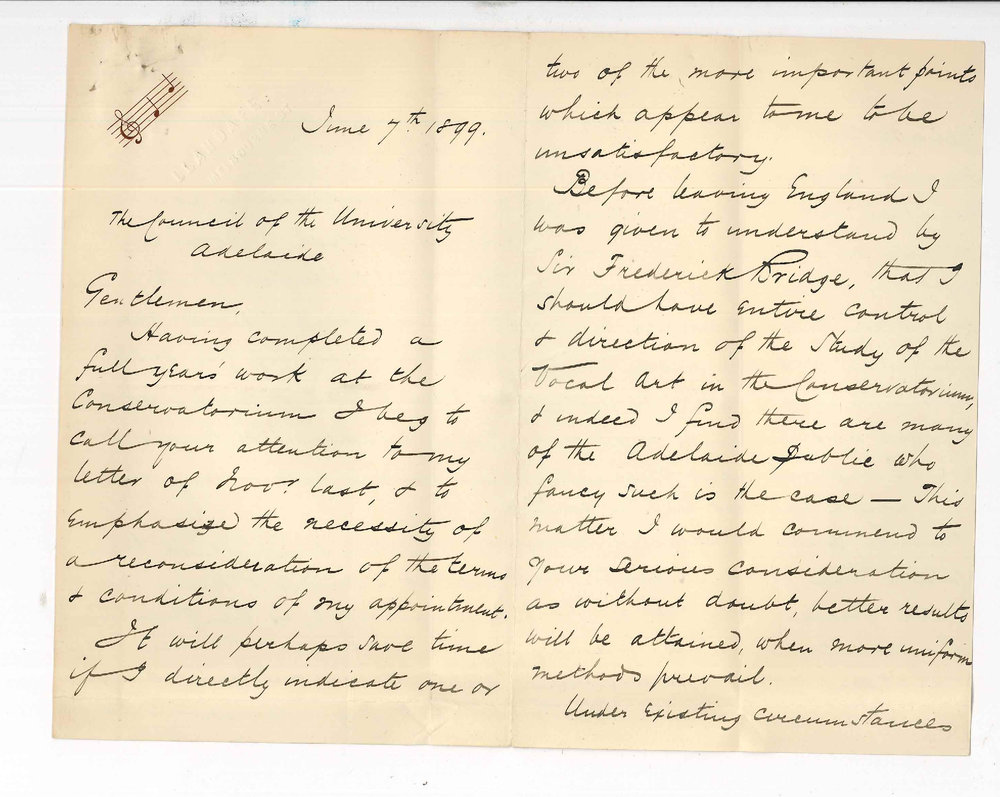 June 7th 1899.
The Council of the University
Adelaide
Gentlemen,
Having completed a
full years' work at the
Conservatorium I beg to
call your attention to my
letter of Novr. last, & to
emphasize the necessity of
a reconsideration of the terms
& conditions of my appointment.
It will perhaps save time
if I directly indicate one or
two of the more important points
which appear to me to be
unsatisfactory.
Before leaving England I
was given to understand by
Sir Frederick Bridge, that I
should have entire control
& direction of the Study of the
Vocal Art in the Conservatorium,
& indeed I find there are many
of the Adelaide Public who
fancy such is the case — This
matter I would commend to
your serious consideration
as without doubt, better results
will be attained, when more uniform
methods prevail.
Under existing circumstances